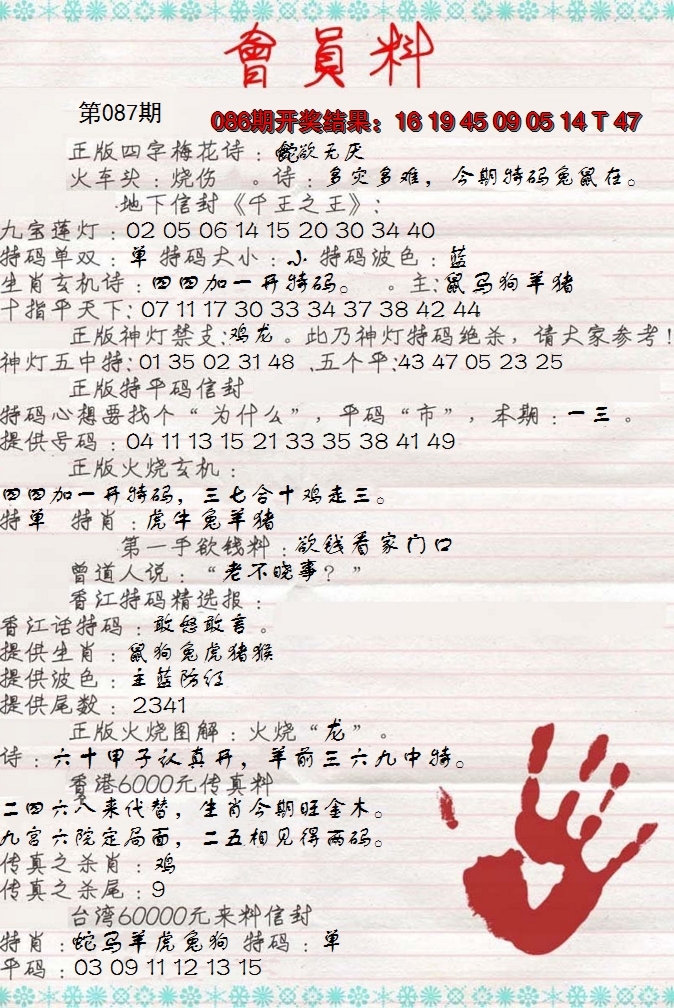 會員料
第087期
086期开奖结果：16 19 45 09 05 14 T 47
正版四字梅花诗：蛇欲无厌
火车头：烧伤　。诗：多灾多难，今期特码兔鼠在。
地下信封《千王之王》：
九宝莲灯：02 05 06 14 15 20 30 34 40
特码单双：单 特码大小：小 特码波色：蓝
生肖玄机诗：四四加一开特码。　。主:鼠马狗羊猪
十指平天下:07 11 17 30 33 34 37 38 42 44
正版神灯禁支:鸡龙。此乃神灯特码绝杀，请大家参考!
神灯五中特:01 35 02 31 48 .五个平:43 47 05 23 25
正版特平码信封
特码心想要找个“为什么”，平码“市”，本期：一三。
提供号码：04 11 13 15 21 33 35 38 41 49
正版火烧玄机：
四四加一开特码，三七合十鸡走三。
特单　特肖：虎牛兔羊猪
第一手欲钱料：欲钱看家门口
曾道人说：“老不晓事？”
香江特码精选报：
香江话特码：敢怒敢言。
提供生肖：鼠狗兔虎猪猴
提供波色：主蓝防红
提供尾数：2341
正版火烧图解：火烧“龙”。
诗：六十甲子认真开，羊前三六九中特。
香港6000元传真料
二四六八来代替，生肖今期旺金木。
九宫六院定局面，二五相见得两码。
传真之杀肖：鸡
传真之杀尾：9
台湾60000元来料信封
特肖：蛇马羊虎兔狗 特码：单
平码：03 09 11 12 13 15